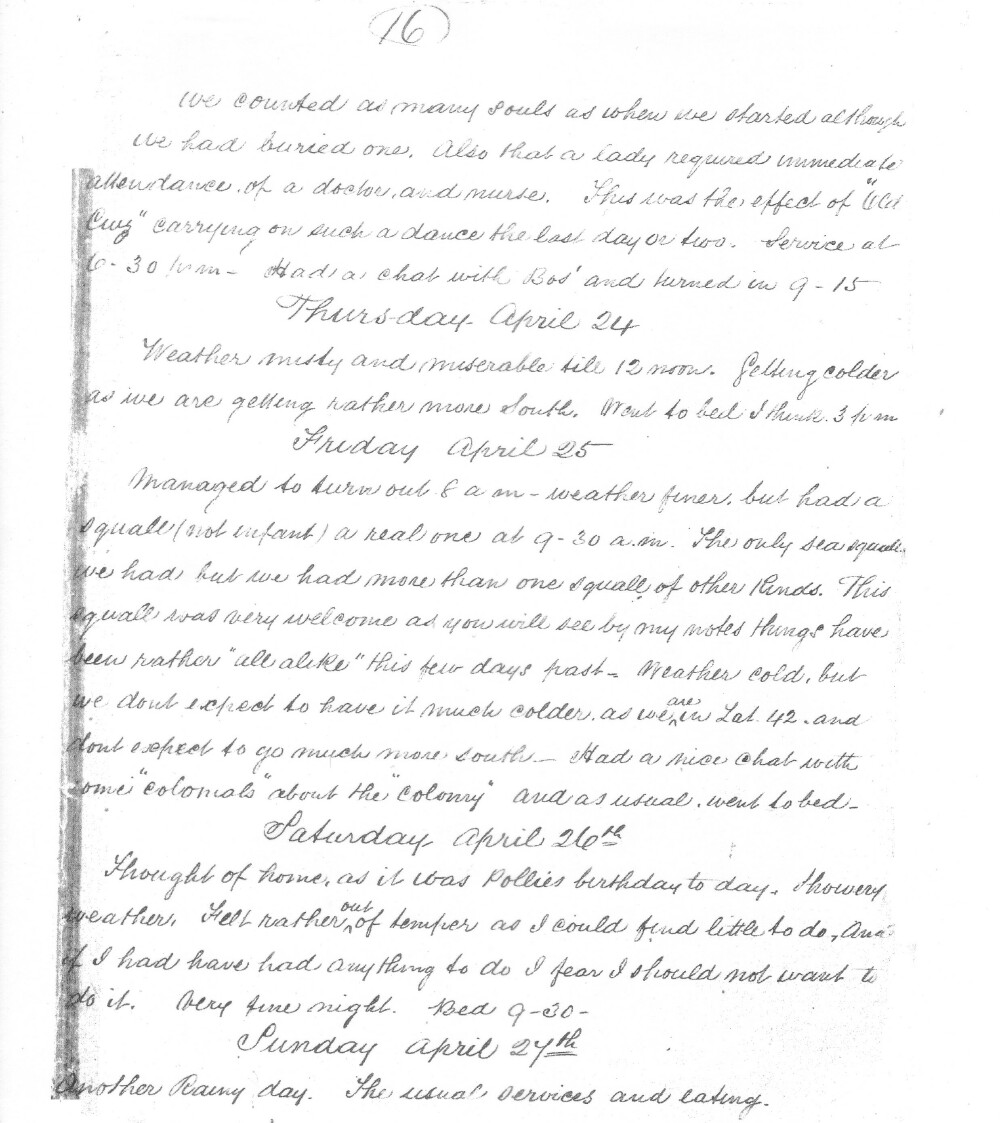 16
we counted as many souls as when we started although
we had buried one. Also that a lady required immediate
attendance of a doctor, and nurse. This was the effect of "Old
" carrying on such a dance the last day or two. Service at
6-30 pm - Had a chat with Bos' and turned in 9-15
Thursday April 24
Weather misty and miserable till 12 noon. Getting colder
as we are getting rather more South. Went to bed I think 3 pm
Friday April 25
Managed to turn out 8 a m - weather finer, but had a
squall (not infant) a real one at 9-30 a.m. The only sea squall
we had but we had more than one squall of other Kinds. This
squall was very welcome as you will see by my notes things have
been rather "all alike" this few days past - Weather cold, but
we dont expect to have it much colder, as we are in Lat. 42. and
dont expect to go much more south - Had a nice chat with
some "colonials" about the "colony" and as usual went to bed -
Saturday April 26th
Thought of home, as it was Pollies birthday to day. Showery
weather. Felt rather out of temper as I could find little to do, And
if I had have had anything to do I fear I should not want to
do it. Very fine night. Bed 9-30-
Sunday April 27th
Another Rainy day. The usual services and eating.